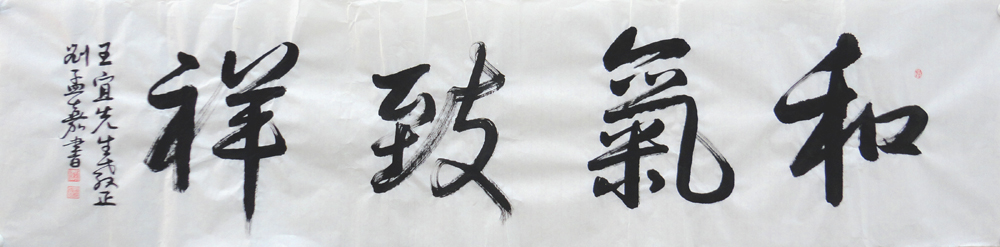 和氣致祥
王宜先生教正
劉孟嘉書